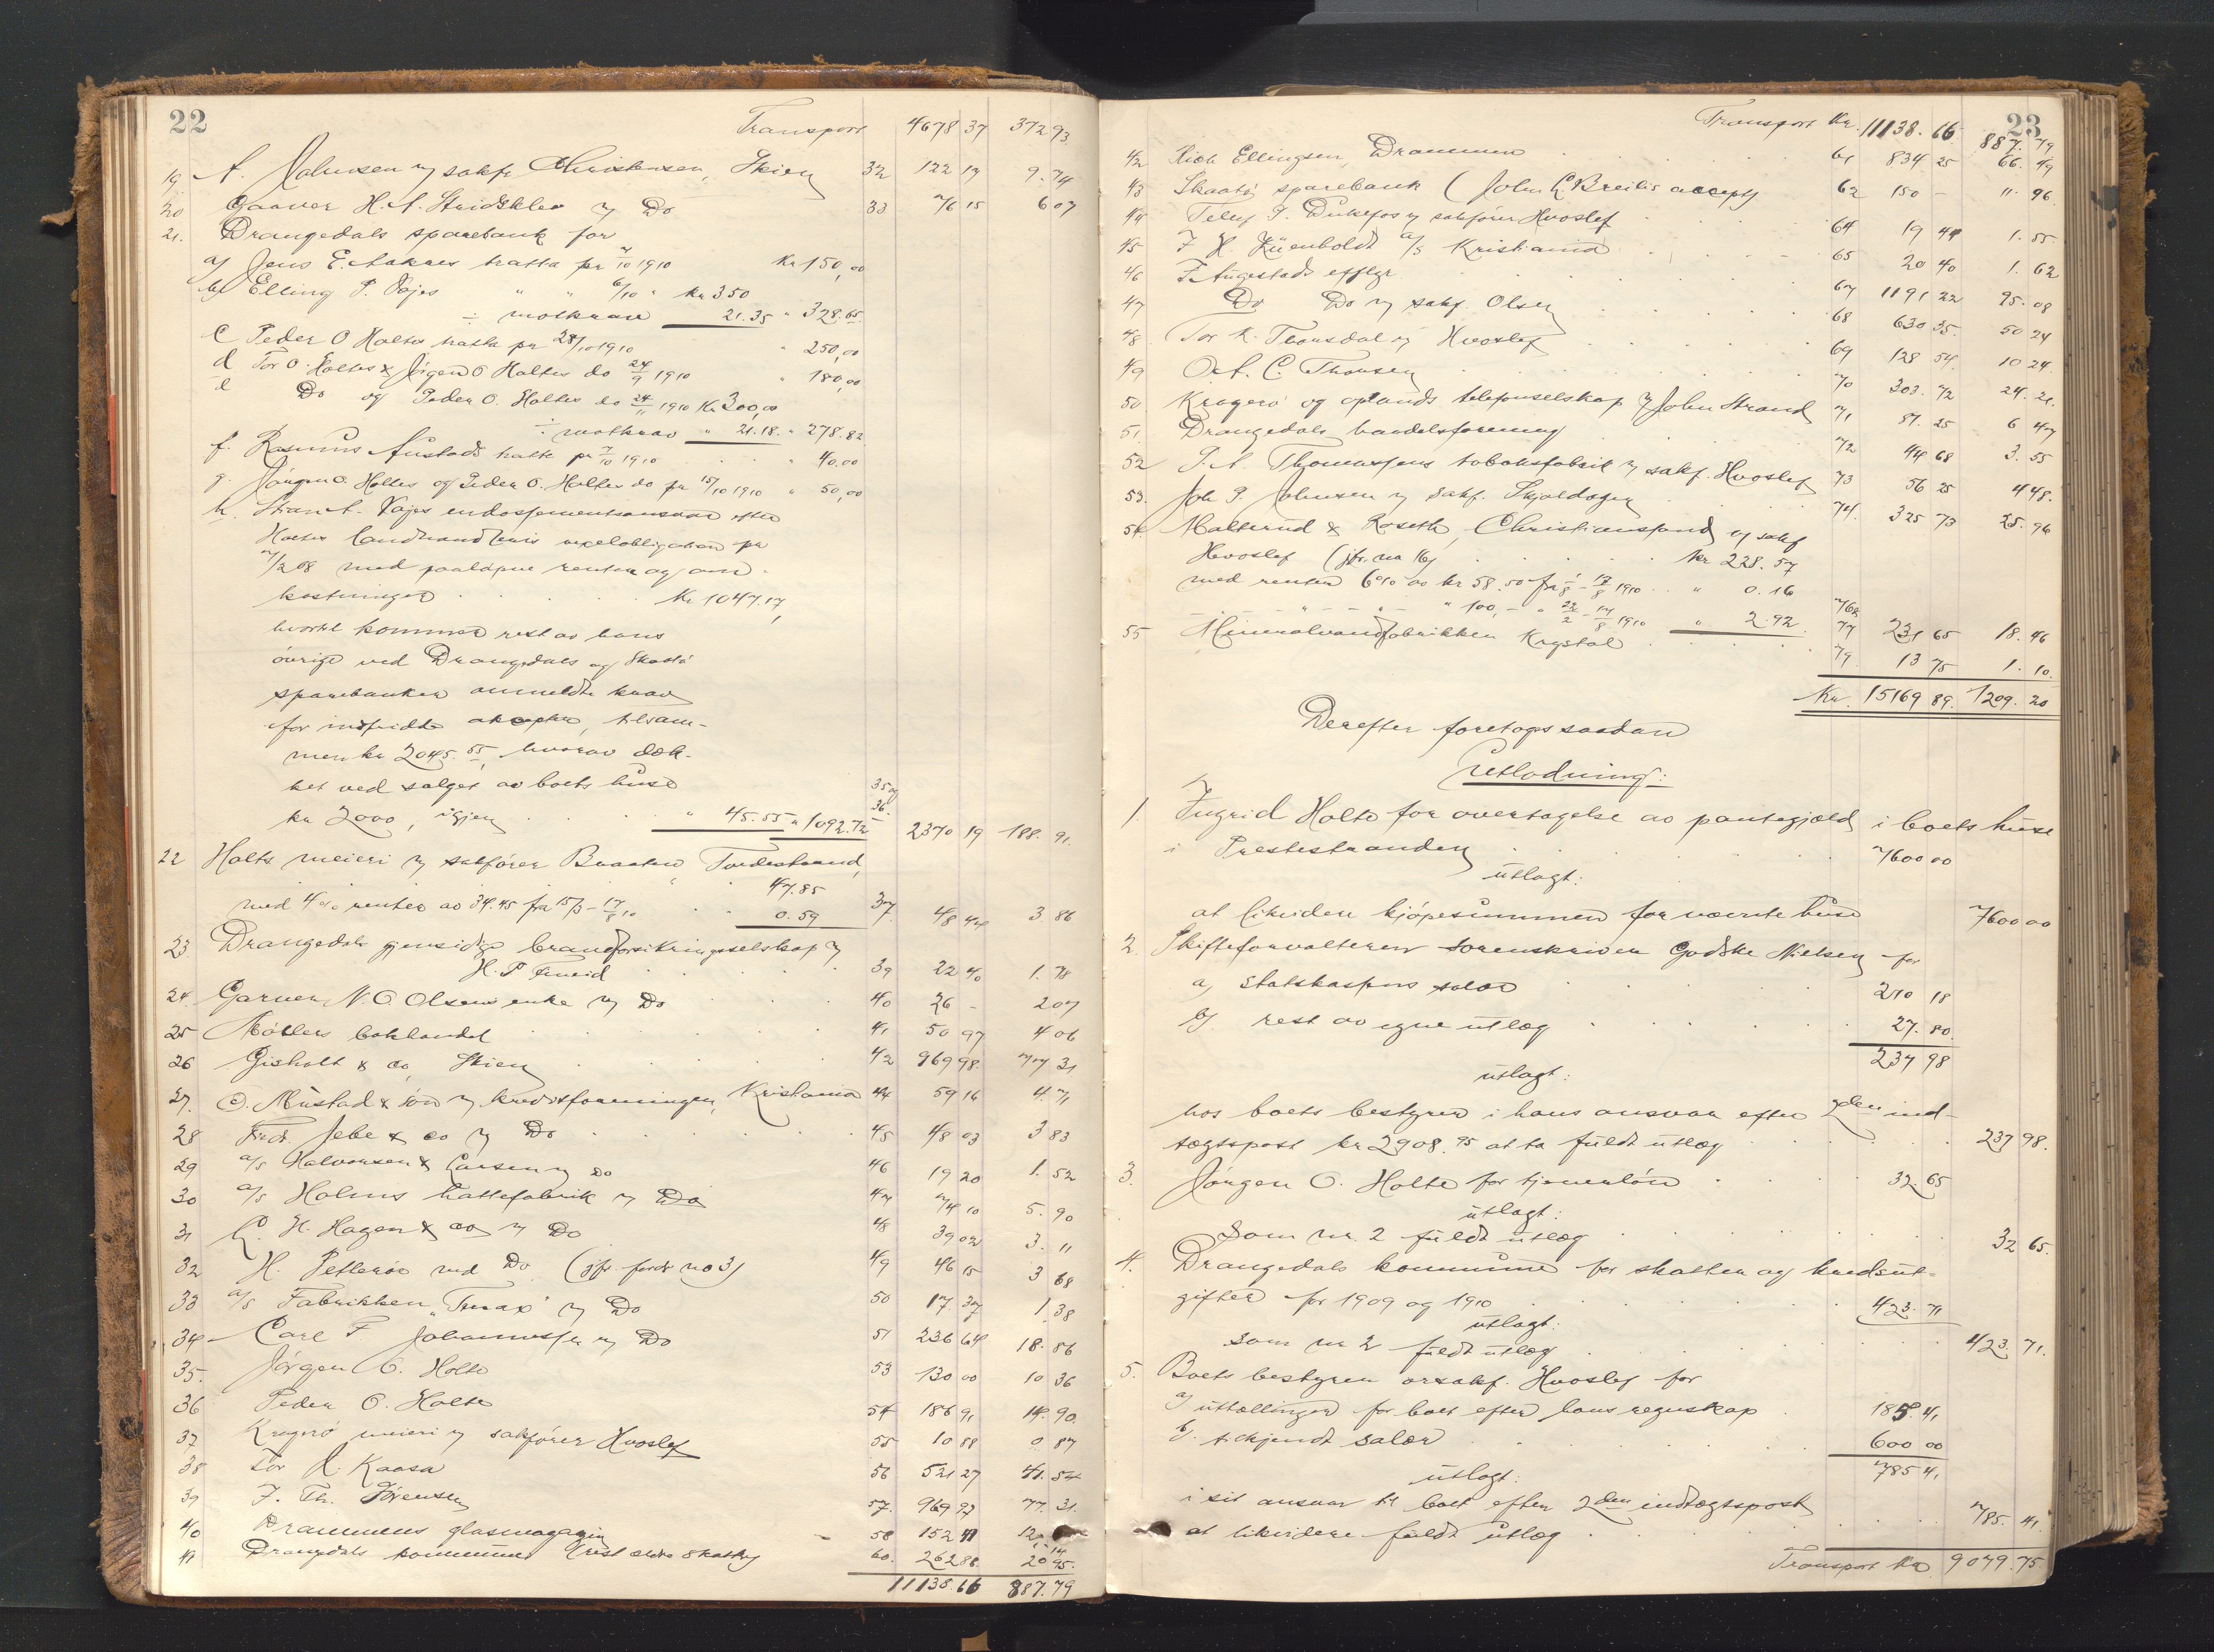 22
Transport 4678 37 372 93
19 A. Johnsen v sakfr Christensen, Skien 32 122 17 9.74
20 Garver H. A. Stridsklev v Do 33 76 15 6 07
21. Drangedals sparebank for
a) Jens E. Aakres tratta pr 7/10 1910 Kr 150,00
b) Elling P. Vøjes " " 6/10 " kr 350
÷ motkrav 21.35 " 328.65
c Peder O Holtes tratta pr 28/10 1910 " 250,00
d Tor O. Holtes & Jörgen O Holtes do 24/9 1910 " 180,00
e Do og Peder O. Holtes do 24/11 1910 Kr 300,00
÷ motkrav " 21.18. " 278.82
f. Rasmus Austads tratte pr 7/10 1910 " 40.00
g. Jörgen O. Holtes og Peder O. Holtes do pr 15/10 1910 " 50,00
h. Stian A. Vøjes endossementsansvar efter
Holtes landhandleris vexelobligation pr
7/2 08 med paaløpne renter og om-
kostninger Kr 1047.17,
hvortil kommer rest av hans
övrige ved Drangedals og Skaatö
sparebanker anmeldte krav
for indfridde aksepter, tilsam-
men kr 2045.55, hvorav dæk-
ket ved salget av boets huse
kr 2000, igjen " 45.55 " 1092.72 35 og 36. 2370 19 188. 91.
22 Holts meieri v sakförer Braaten, Tvedestrand,
" 47.85
med 4% renter av 34.45 fra 15/3 - 17/8 10 " 0.59 37. 48 44 3. 86
23. Drangedals gjensidige brandforsikringsselskap v
H. P Tveid 39 22 40 1. 78
24. Garver N. O Olsens enke v Do 40 26 - 2 07
25 Möllers bokhandel 41 50 97 4 06
26 Gisholt & co, Skien 42 969 98. 77 31
27. O. Mustad & sön v kreditforeningen, Kristiania 44 59 16 4. 71
28 Fredr. Jebe & co v Do 45 48 03 3 83
29 a/s Halvorsen & Larsen v Do 46 19 20 1. 52
30 a/s Holms hattefabrik v Do 47 74 10 5. 90
31 C. H. Hagen & co v Do 48 39 02 3. 11
32 H. Petterøe ved Do (jfr. fordr no 3) 49 46 15 3 68
33 a/s Fabrikken "Trax" v Do 50 17 37 1 38
34 Carl F Johannessen v Do 51 236 64 18. 86
35. Jörgen O. Holte 53 130 00 10 36
36 Peder O. Holte 54 186 91 14. 90.
37. Kragerö meieri v sakförer Hvoslef 55 10 88 0 87
38 Tor K. Kaasa 56 521 27 41. 54
39 J. Th. Sörensen 57. 969 97 77. 31.
40 Drammens glasmagazin 58 152 41 12
41 Drangedals kommune (rest eldre skatter) 60. 262 86. 20 95.
11138.66 887.79
23
Transport Kr. 11138. 66 887. 79
42 Rich Ellingsen, Drammen 61 834 25 66. 49
43 Skaatö sparebank (John C. Breilis accept) 62 150 - 11. 96.
44 Telef P. Dukefos v sakförer Hvoslef 64 19 44 1. 55
45 F. H. Küenholdt a/s Kristiania 65 20 40 1. 62
46 F. Angestads efflgr. 67 1191 22 95. 08
47 Do Do v sakf. Olsen 68 630 35. 50 24
48 Tor K. Tronsdal v Hvoslef 69 128 54. 10 24.
49 Oct. C. Thorsen 70 303. 72 24. 21.
50. Kragerö og oplands telefonselskap v John Strand 71 81. 25 6 47
51. Drangedals handelsforening 72 44 68 3. 55
52 P. A. Thomassens tobaksfabrik v sakf. Hvoslef 73 56 25 4 48.
53. Joh P. Johnsen v Sakf. Skjoldager 74. 325 73 25. 96
54. Mallerud & Roseth, Christianssand v sakf
Hvoslef (jfr. no 16) kr 228. 57
med renter 6% av kr 58.50 fra 1/8 - 17/8 1910 " 0. 16
- " - - " - " 100,- " 22/2 - 17/8 1910 " 2.92. 76 & 77 231 65 18. 46
55 Mineralvandfabrikken Krystal 79. 13 75 1. 10.
Kr. 15169 89. 1209. 20
Derefter foretages saadan
Utlodning:
1. Ingrid Holte for overtagelse av pantegjeld i boets huse
i Prestestranden 7600 00
utlagt:
at likvidere kjöpesummen for nævnte huse 7600 00
2. Skifteforvalteren sorenskriver Godske Nielsen for
a) statskassens salær 210 18
b) rest av egne utlæg 27. 80.
237 98
utlagt:
hos boets bestyrer i hans ansvar efter 2den ind-
tægtspost kr 2908.95 at ta fuldt utlæg 237 98.
3. Jörgen O. Holte for tjenerlön 32. 65
utlagt:
som nr. 2 fuldt utlæg 32 65.
4. Drangedals kommune for skatter og kredsut-
gifter for 1909 og 1910 423. 71
utlagt:
som nr 2 fuldt utlæg 423. 71.
5. Boets bestyrer orsakf. Hvoslef for
a) uttællinger for boet efter hans regnskap 185. 41
b). tilkjendt salær 600 00
785 41
utlagt:
i sit ansvar til boet efter 2den indtægtspost
at likvidere fuldt utlæg 785. 41.
Transport Kr 9079. 75